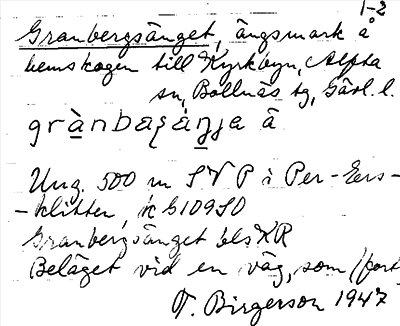 1-2
Granbergsänget, ängsmark å
hemskogen till Kyrkbyn, Alfta
sn, Bollnäs tg, Gävl. l.
Ung. 500 m SV P i Per-Ers-
-klitten, k G109SO
Granbergsänget bls XR
Beläget vid en väg, som (fort
T. Birgerson 1947